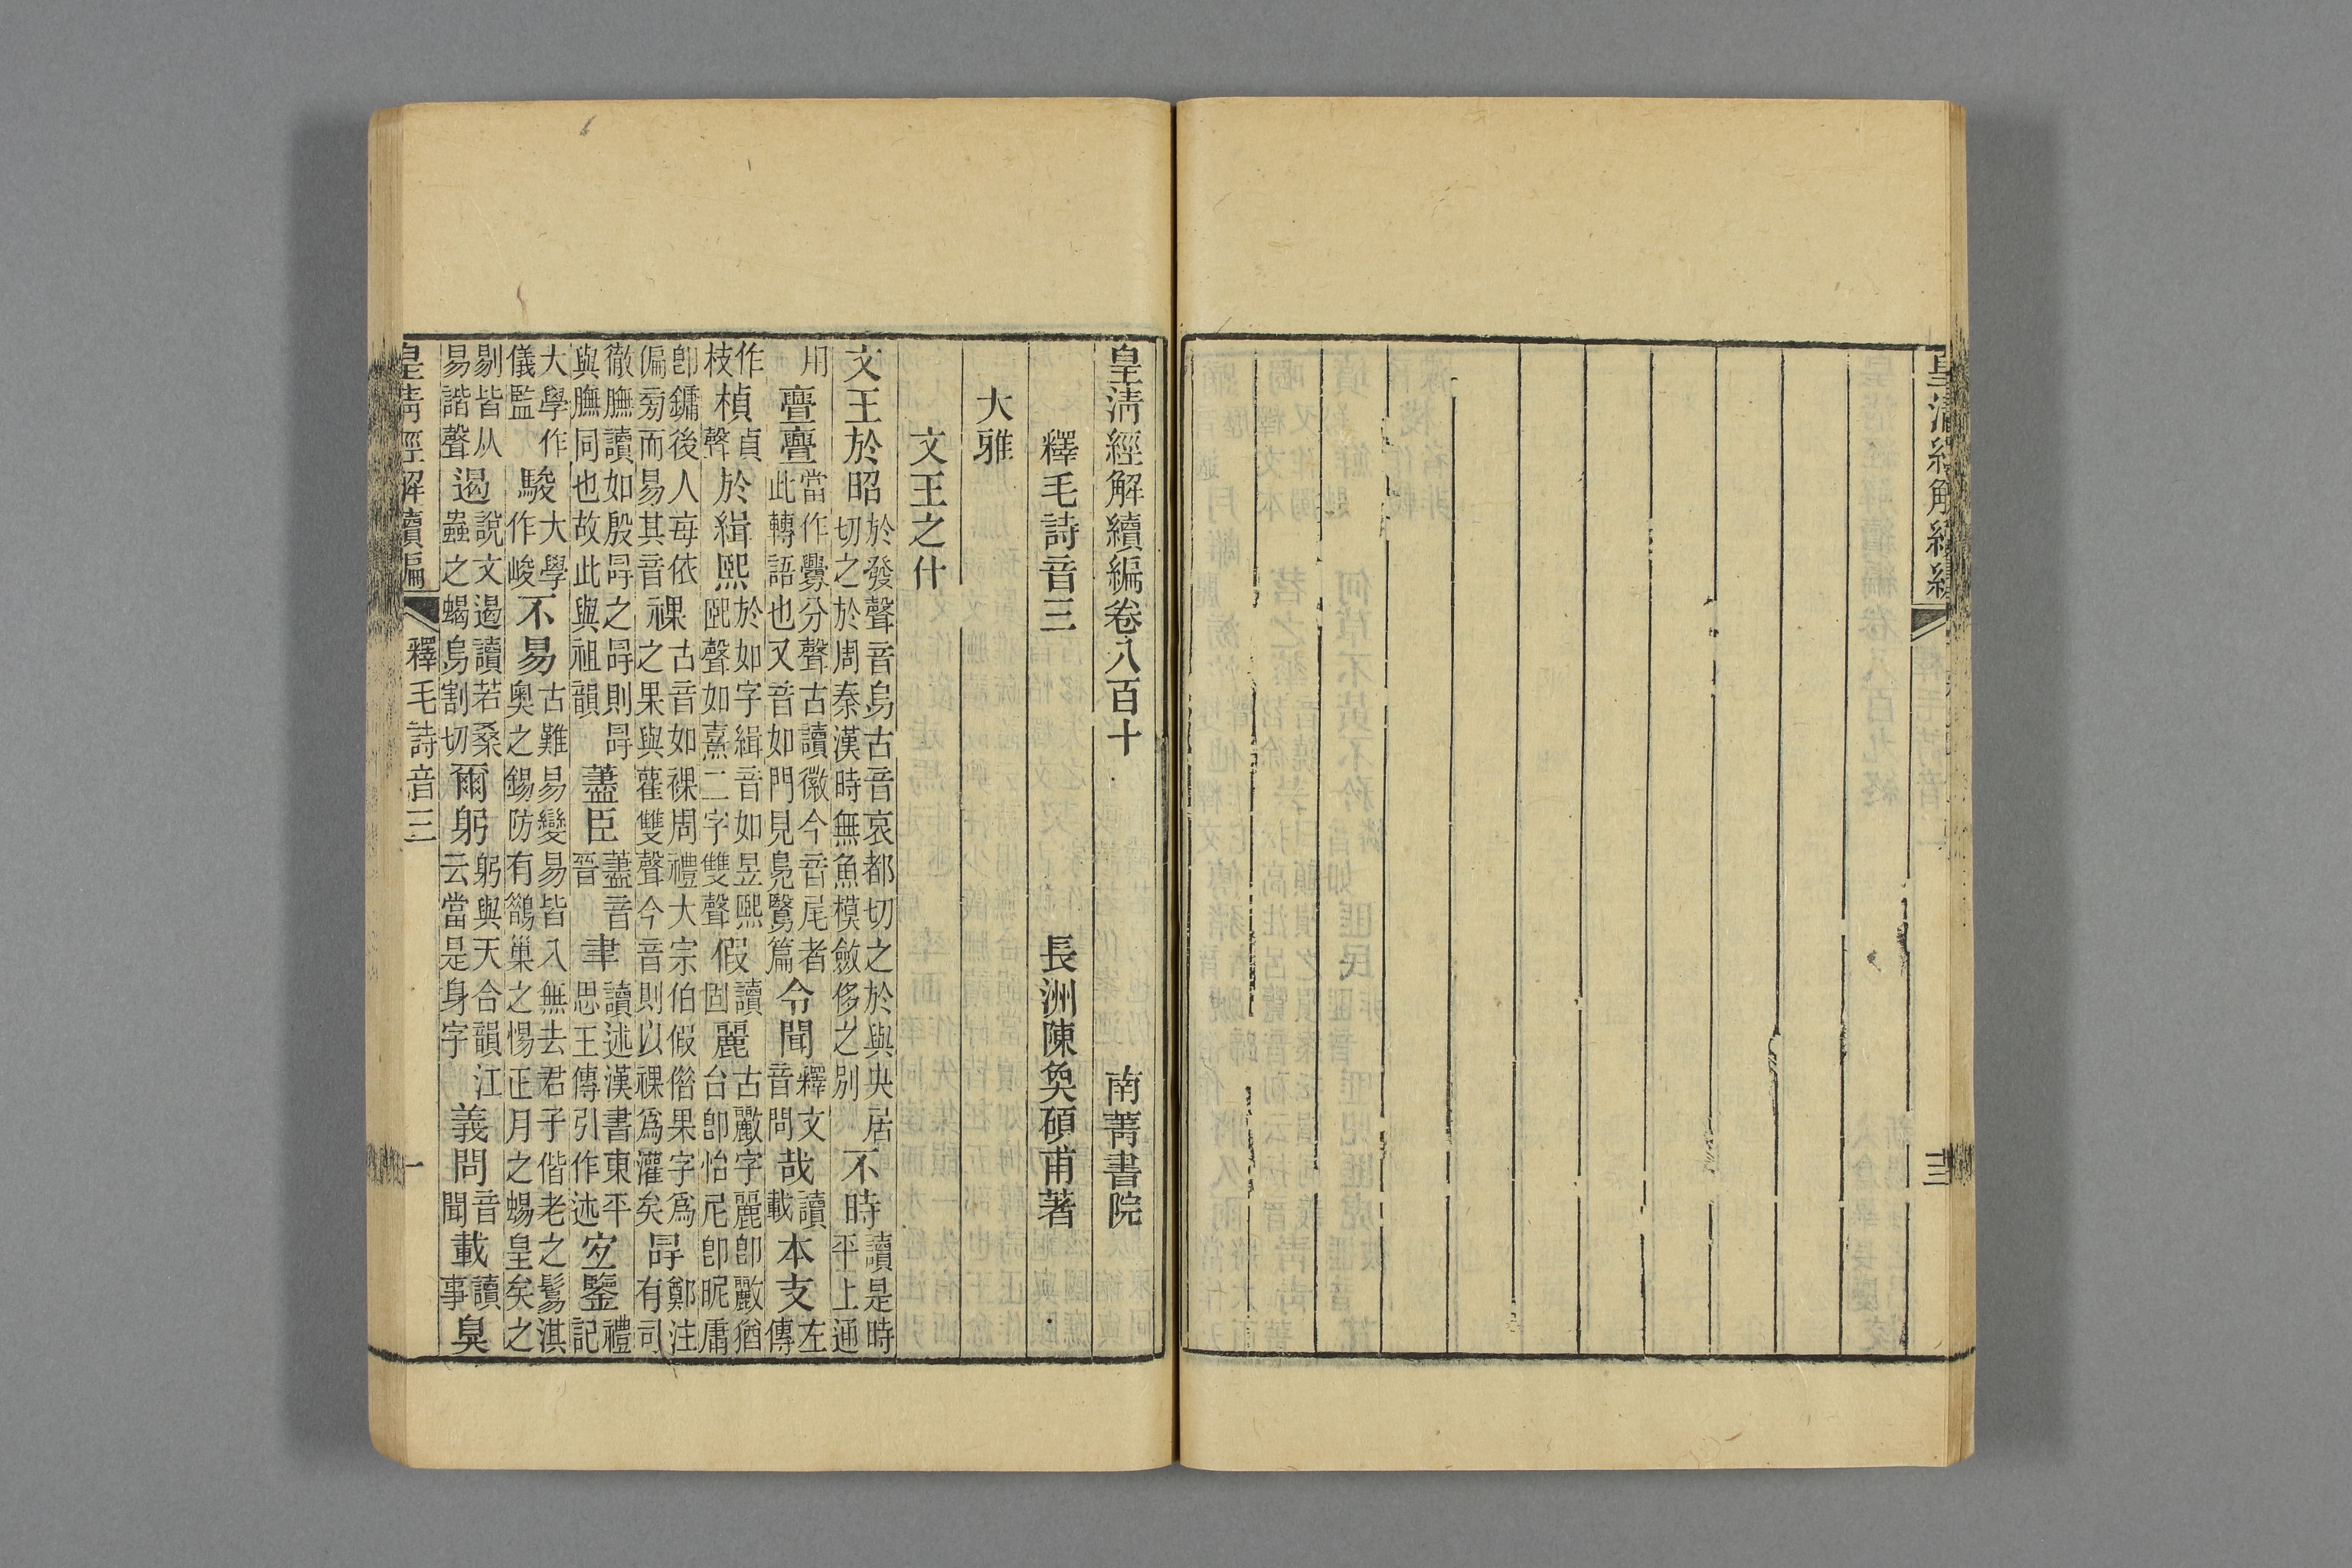 皇清經解續編
皇清經解續編卷八百十 南菁書院
釋毛詩音三 長洲陳奐碩甫著
大雅
文王之什
文王於昭於發聲音烏古音哀都切之於與央居切之於周秦漢時無魚模斂侈之別不時讀是時平上通
用亹亹當作釁分聲古讀徽今音尾者此轉語也又音如門見鳧鷖篇令聞釋文音問哉讀載本支左傳
作枝楨貞聲於緝熙於如字緝音如昱熙巸聲如熹二字雙聲假讀固麗古𢿨字麗卽𢿨猶台卽怡尼卽昵庸
卽鏞後人每依偏旁而易其音祼古音如祼周禮大宗伯假偺果字爲之果與雚雙聲今音則以祼爲灌矣冔鄭注有司
徹膴讀如殷冔之冔則冔與膴同也故此與祖韻藎臣藎音晉聿讀述漢書東平思王傳引作述宐鑒禮記
大學作儀監駿大學作峻不易古難易變易皆入無去君子偕老之鬄淇奧之錫防有鷊巢之惕正月之蜴皇矣之
剔皆从易諧聲遏說文遏讀若桑蟲之蝎烏割切爾躬躬與天合韻江云當是身字義問音聞載讀事臭
皇清經解續編 釋毛詩音三 一